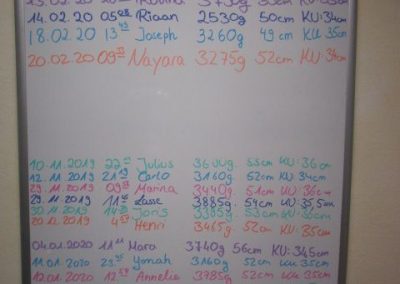 20 3730g 53cm
14.02.20 05 Riaan 2530g 50cm KU: 34cm
18.02.20 13 Joseph 3260g 49cm KU 35cm
20.02.20 09 Nayara 3275g 52cm KU: 34cm
10.11.2019 Julius 3600g. 55cm KU: 36cm
12.11.2019 21 Carlo 3160g 52cm KU 34cm
29.11.2019 09 Marina 3440g. 51cm KU: 36cm
29.11.2019 11 Lasse 3885g. 54cm KU: 35,5cm
30.11.2019 14 Joris 3385g 53cm KU: 36cm
20.12.2019 4 Henri 3465g 52cm KU: 35cm
04.01.2020 11 Mara 3740g 56cm KU: 34,5cm
11.01.2020 Yonah 3160g 52cm KU 35cm
12.01.2020 12 Annelie 3785g 52cm KU 35cm